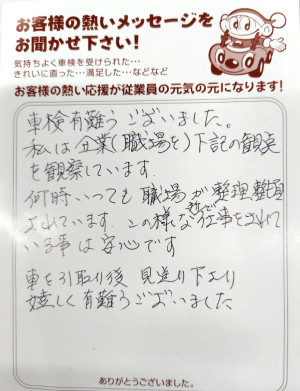 お客様の熱いメッセージを
お聞かせ下さい!
気持ちよく車検を受けられた…
きれいに直った…満足した…などなど
お客様の熱い応援が従業員の元気の元になります!
車検有難うございました。
私は企業(職場を)下記の観点
を観察しています。
何時いっても職場が整理整頓
されています。この様な所で仕事をされて
いる事は安心です
車を引取り後 見送り下より
嬉しく有難うございました
ありがとうございました。